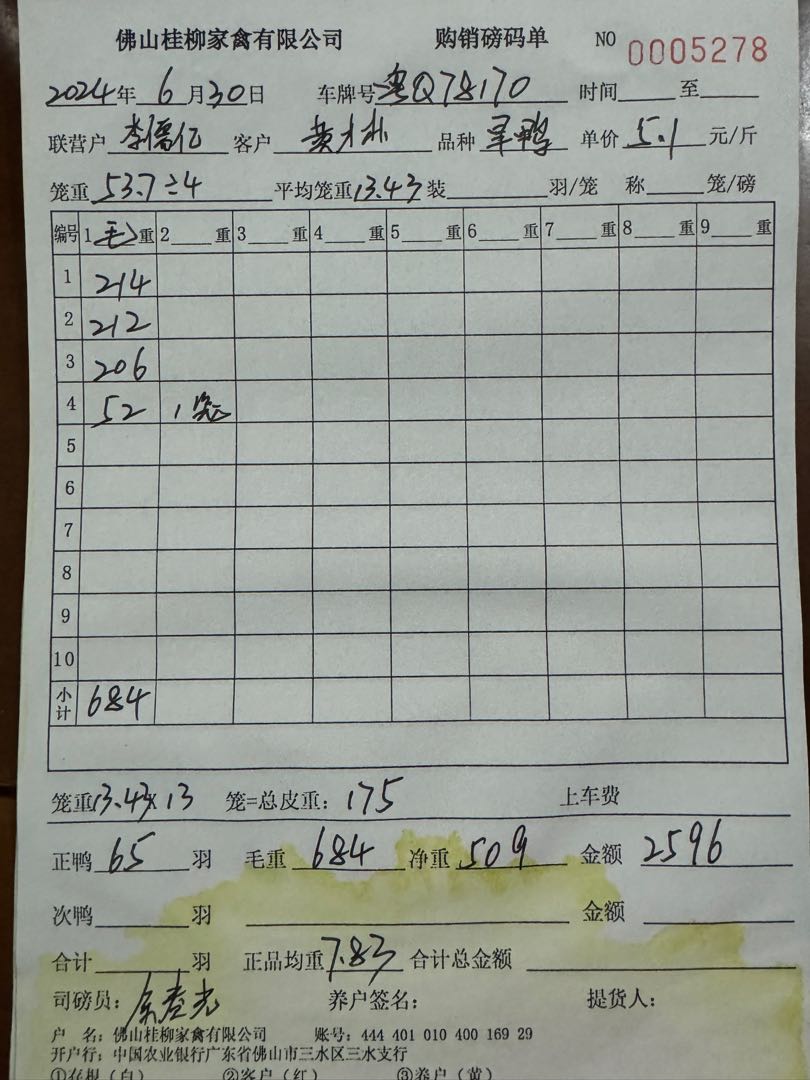 佛山桂柳家禽有限公司 购销磅码单 NO 0005278
2024年 6月30日 车牌号粤Q78170 时间 至
联营户 李儒亿 客户 黄才 品种 旱鸭 单价 5.1 元/斤
笼重 53.7÷4 平均笼重13.43 装 羽/笼 称 笼/磅
编号 1毛重 2 重 3 重 4 重 5 重 6 重 7 重 8 重 9 重
1 214
2 212
3 206
4 52 1笼
5
6
7
8
9
10
小计 684
笼重13.43×13 笼=总皮重：175 上车费
正鸭 65 羽 毛重 684 净重 509 金额 2596
次鸭 羽 金额
合计 羽 正品均重7.83 合计总金额
司磅员： 养户签名： 提货人：
户 名：佛山桂柳家禽有限公司 账号：444 401 010 400 169 29
开户行：中国农业银行广东省佛山市三水区三水支行
①存根（白） ②客户（红） ③养户（黄）